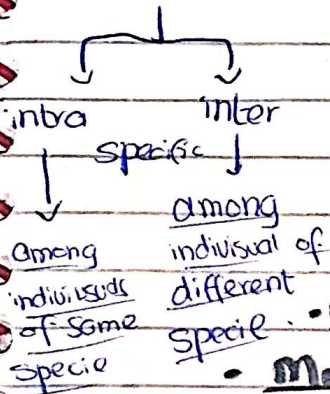 intra inter
specific
among
individuals
of same
specie
among
indivisual of
different
specie.